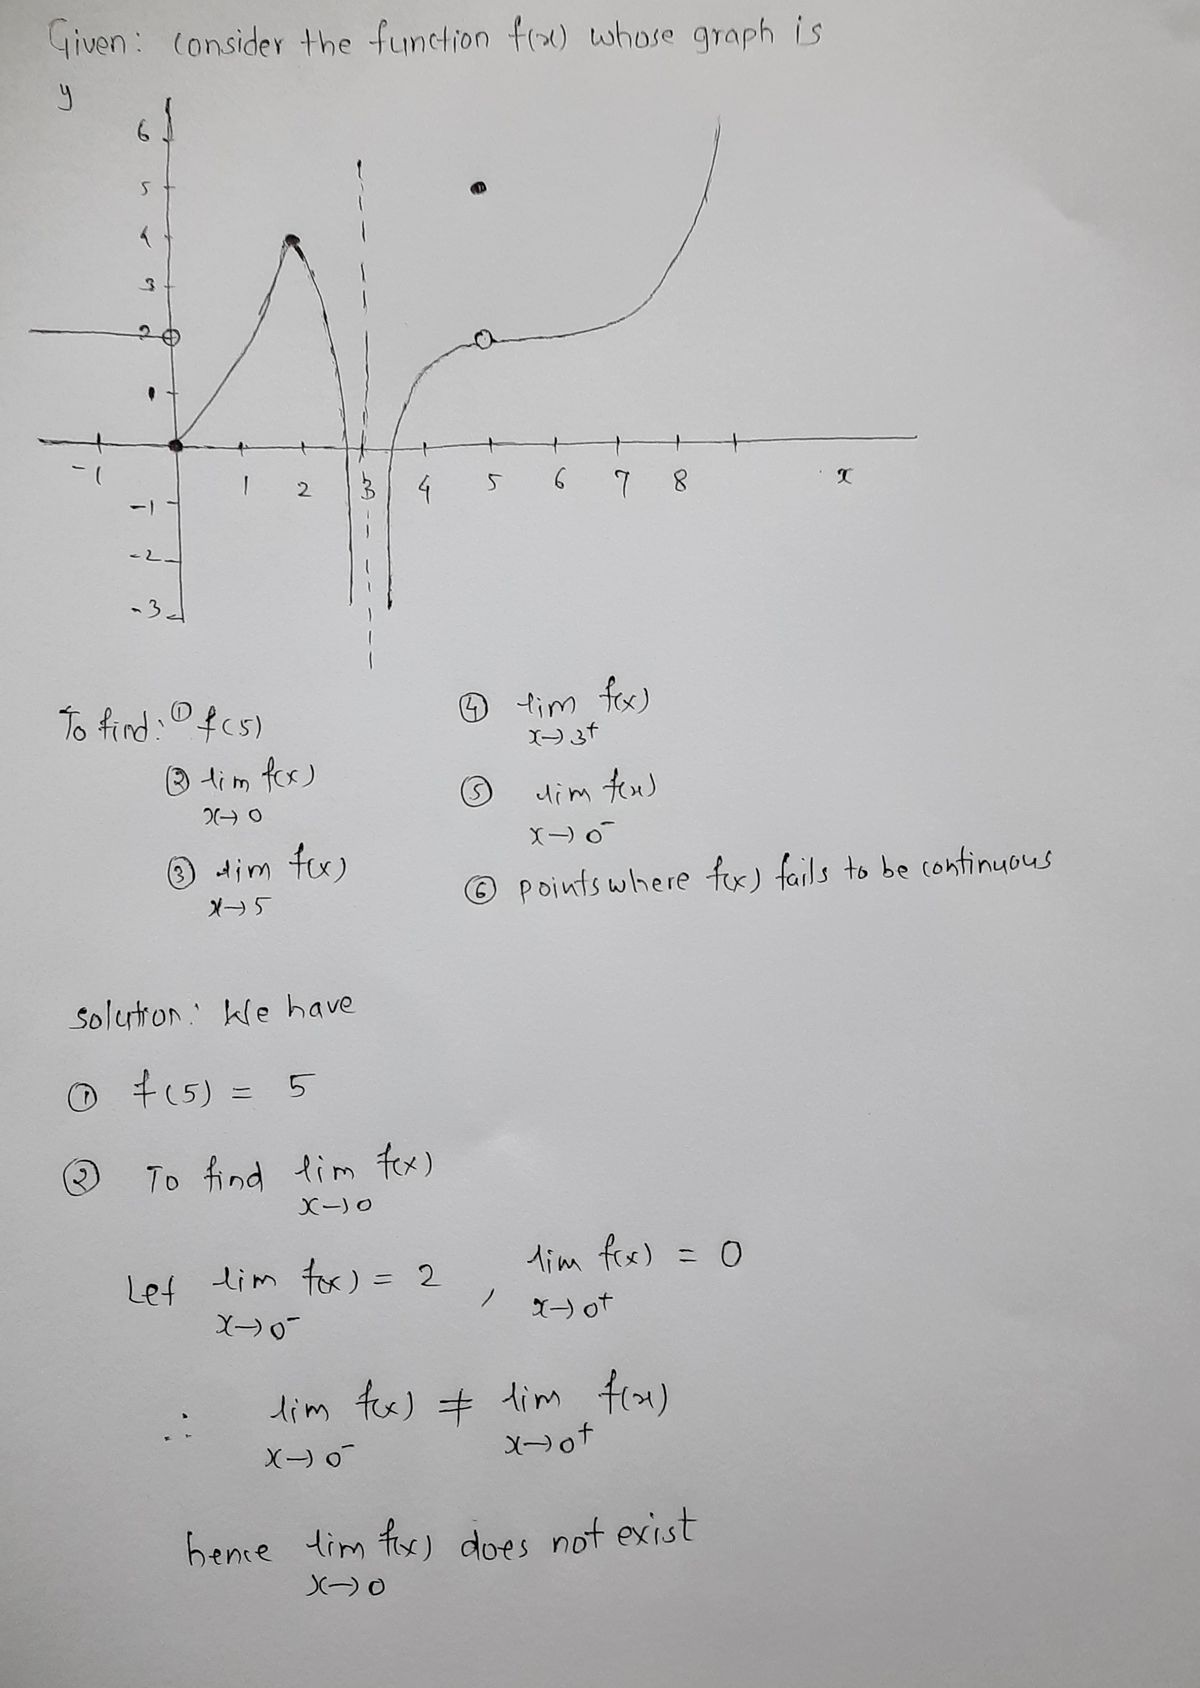 Given: consider the function f(x) whose graph is
y
6
5
4
3
2
-1 1 2 3 4 5 6 7 8 x
-1
-2
-3
To find: ① f(5)
② lim f(x)
x→0
③ lim f(x)
x→5
④ lim f(x)
x→3⁺
⑤ lim f(x)
x→0⁻
⑥ points where f(x) fails to be continuous
solution: We have
① f(5) = 5
② To find lim f(x)
x→0
Let lim f(x) = 2 , lim f(x) = 0
x→0⁻ x→0⁺
∴ lim f(x) ≠ lim f(x)
x→0⁻ x→0⁺
hence lim f(x) does not exist
x→0